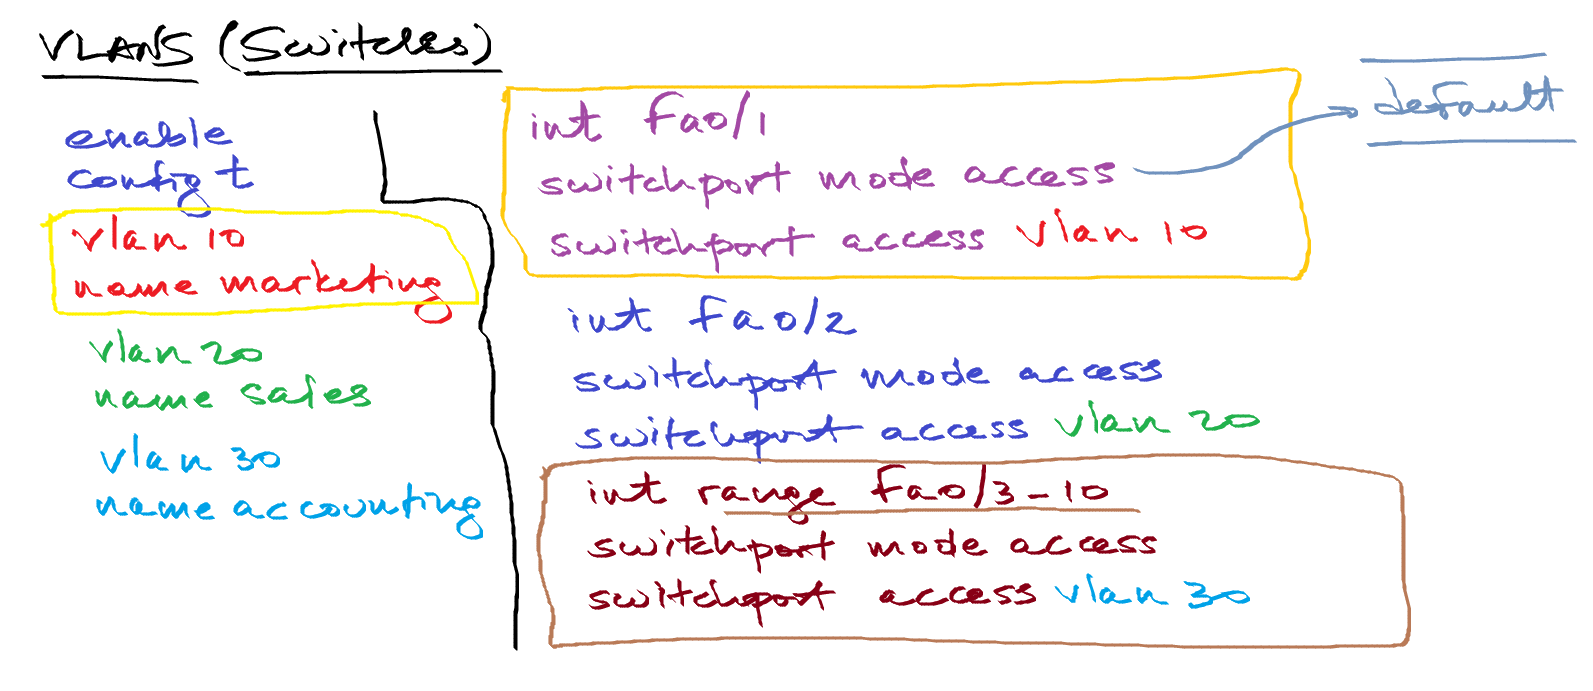 VLANS (Switches)
enable
config t
vlan 10
name marketing
vlan 20
name sales
vlan 30
name accounting
int fa0/1
switchport mode access
default
switchport access vlan 10
int fa0/2
switchport mode access
switchport access vlan 20
int range fa0/3-10
switchport mode access
switchport access vlan 30